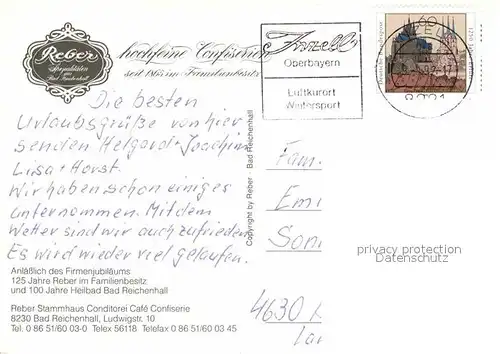 Reber
Spezialitäten
aus
Bad Reichenhall
hochfeine Confiserien
seit 1865 im Familienbesitz
Inzell
Oberbayern
Luftkurort
Wintersport
60
Deutsche Bundespost
Die besten
Urlaubsgrüße von hier
senden Helgard + Joachim
Liisa + Horst.
Wir haben schon einiges
unternommen. Mit dem
Wetter sind wir auch zufrieden.
Es wird wieder viel gelaufen.
Copyright by Reber · Bad Reichenhall
Fam.
Emi
Son
4630
privacy protection
Datenschutz
Anläßlich des Firmenjubiläums
125 Jahre Reber im Familienbesitz
und 100 Jahre Heilbad Bad Reichenhall
Reber Stammhaus Conditorei Café Confiserie
8230 Bad Reichenhall, Ludwigstr. 10
Tel. 0 86 51/60 03-0 Telex 56118 Telefax 0 86 51/60 03 45